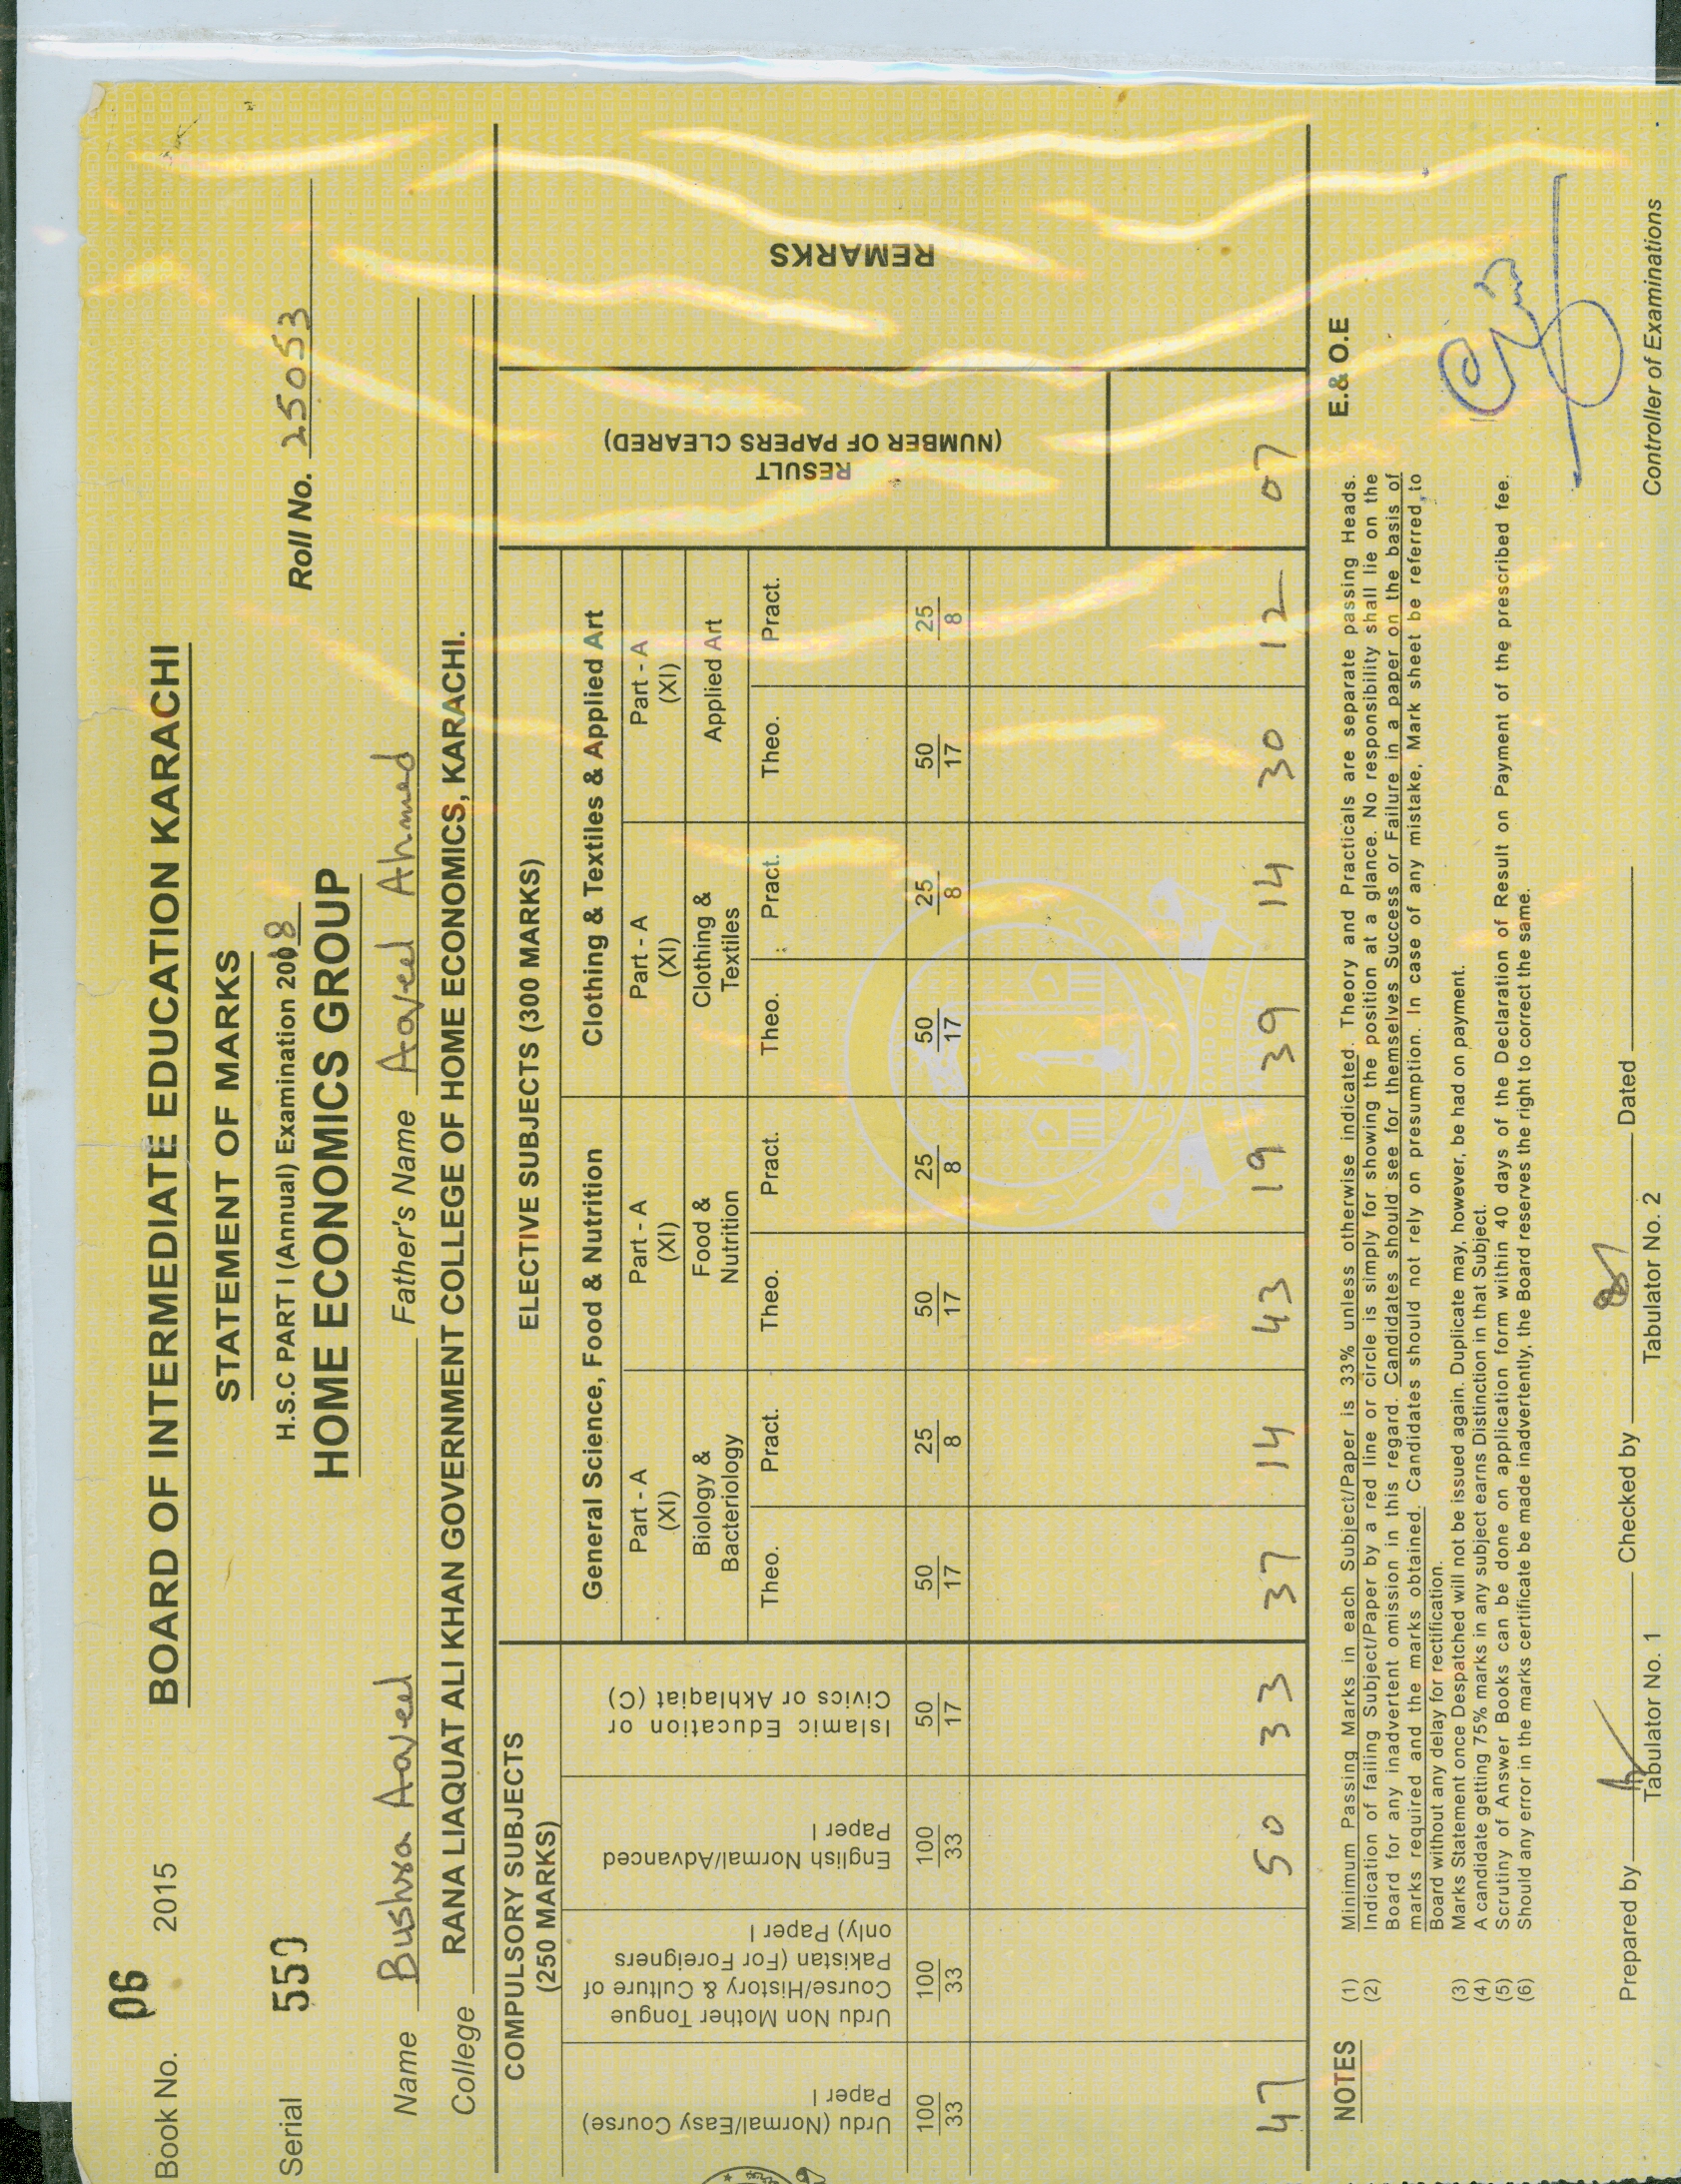 Book No. 06 2015
BOARD OF INTERMEDIATE EDUCATION KARACHI
STATEMENT OF MARKS
Serial 550
H.S.C PART I (Annual) Examination 2008
Roll No. 25053
HOME ECONOMICS GROUP
Name Bushra Aaveel Father's Name Aaveel Ahmed
College RANA LIAQUAT ALI KHAN GOVERNMENT COLLEGE OF HOME ECONOMICS, KARACHI.
COMPULSORY SUBJECTS
(250 MARKS)
ELECTIVE SUBJECTS (300 MARKS)
RESULT
(NUMBER OF PAPERS CLEARED)
REMARKS
Urdu (Normal/Easy Course)
Paper I
Urdu Non Mother Tongue
Course/History & Culture of
Pakistan (For Foreigners
only) Paper I
English Normal/Advanced
Paper I
Islamic Education or
Civics or Akhlaqiat (C)
General Science, Food & Nutrition Clothing & Textiles & Applied Art
Part - A Part - A Part - A Part - A
(XI) (XI) (XI) (XI)
Biology & Food & Clothing & Applied Art
Bacteriology Nutrition Textiles
Theo. Pract. Theo. Pract. Theo. Pract. Theo. Pract.
100 100 100 50 50 25 50 25 50 25 50 25
33 33 33 17 17 8 17 8 17 8 17 8
47 50 33 37 14 43 19 39 14 30 12 07
NOTES
E.& O.E
(1) Minimum Passing Marks in each Subject/Paper is 33% unless otherwise indicated. Theory and Practicals are separate passing Heads.
(2) Indication of failing Subject/Paper by a red line or circle is simply for showing the position at a glance. No responsibility shall lie on the
Board for any inadvertent omission in this regard. Candidates should see for themselves Success or Failure in a paper on the basis of
marks required and the marks obtained. Candidates should not rely on presumption. In case of any mistake, Mark sheet be referred to
Board without any delay for rectification.
(3) Marks Statement once Despatched will not be issued again. Duplicate may, however, be had on payment.
(4) A candidate getting 75% marks in any subject earns Distinction in that Subject.
(5) Scrutiny of Answer Books can be done on application form within 40 days of the Declaration of Result on Payment of the prescribed fee.
(6) Should any error in the marks certificate be made inadvertently, the Board reserves the right to correct the same.
Prepared by Checked by Dated
Tabulator No. 1 Tabulator No. 2 Controller of Examinations